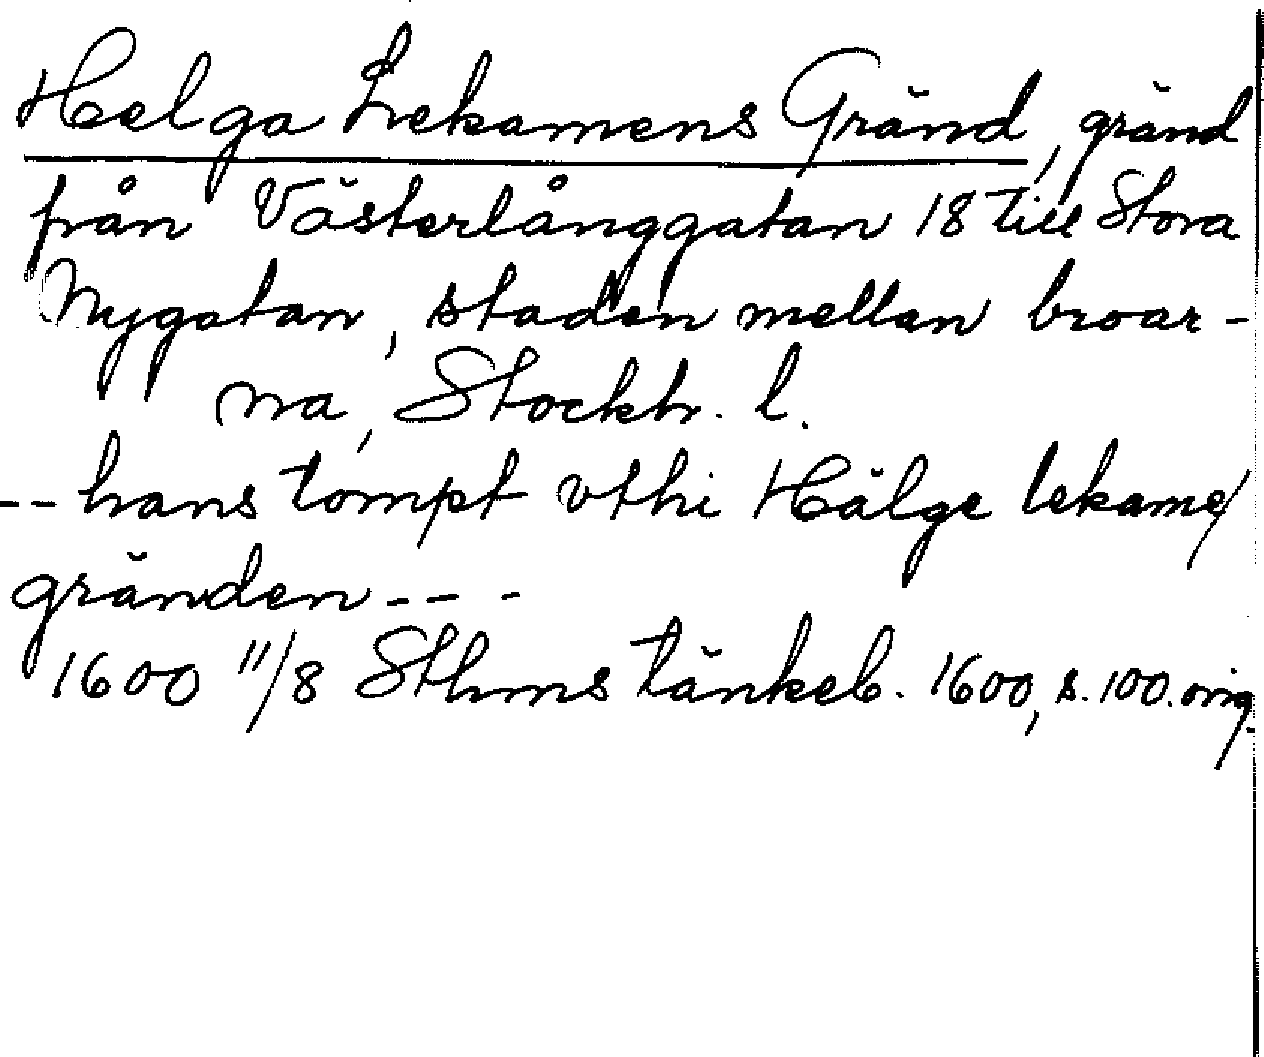 Helga Lekamens Gränd, gränd
från Västerlånggatan 18 till Stora
Nygatan, staden mellan broar-
na, Stockh. l.
-- hans tompt vthi Hälge lekame/
gränden ---
1600 11/8 Sthms tänkeb. 1600, s. 100. orig.